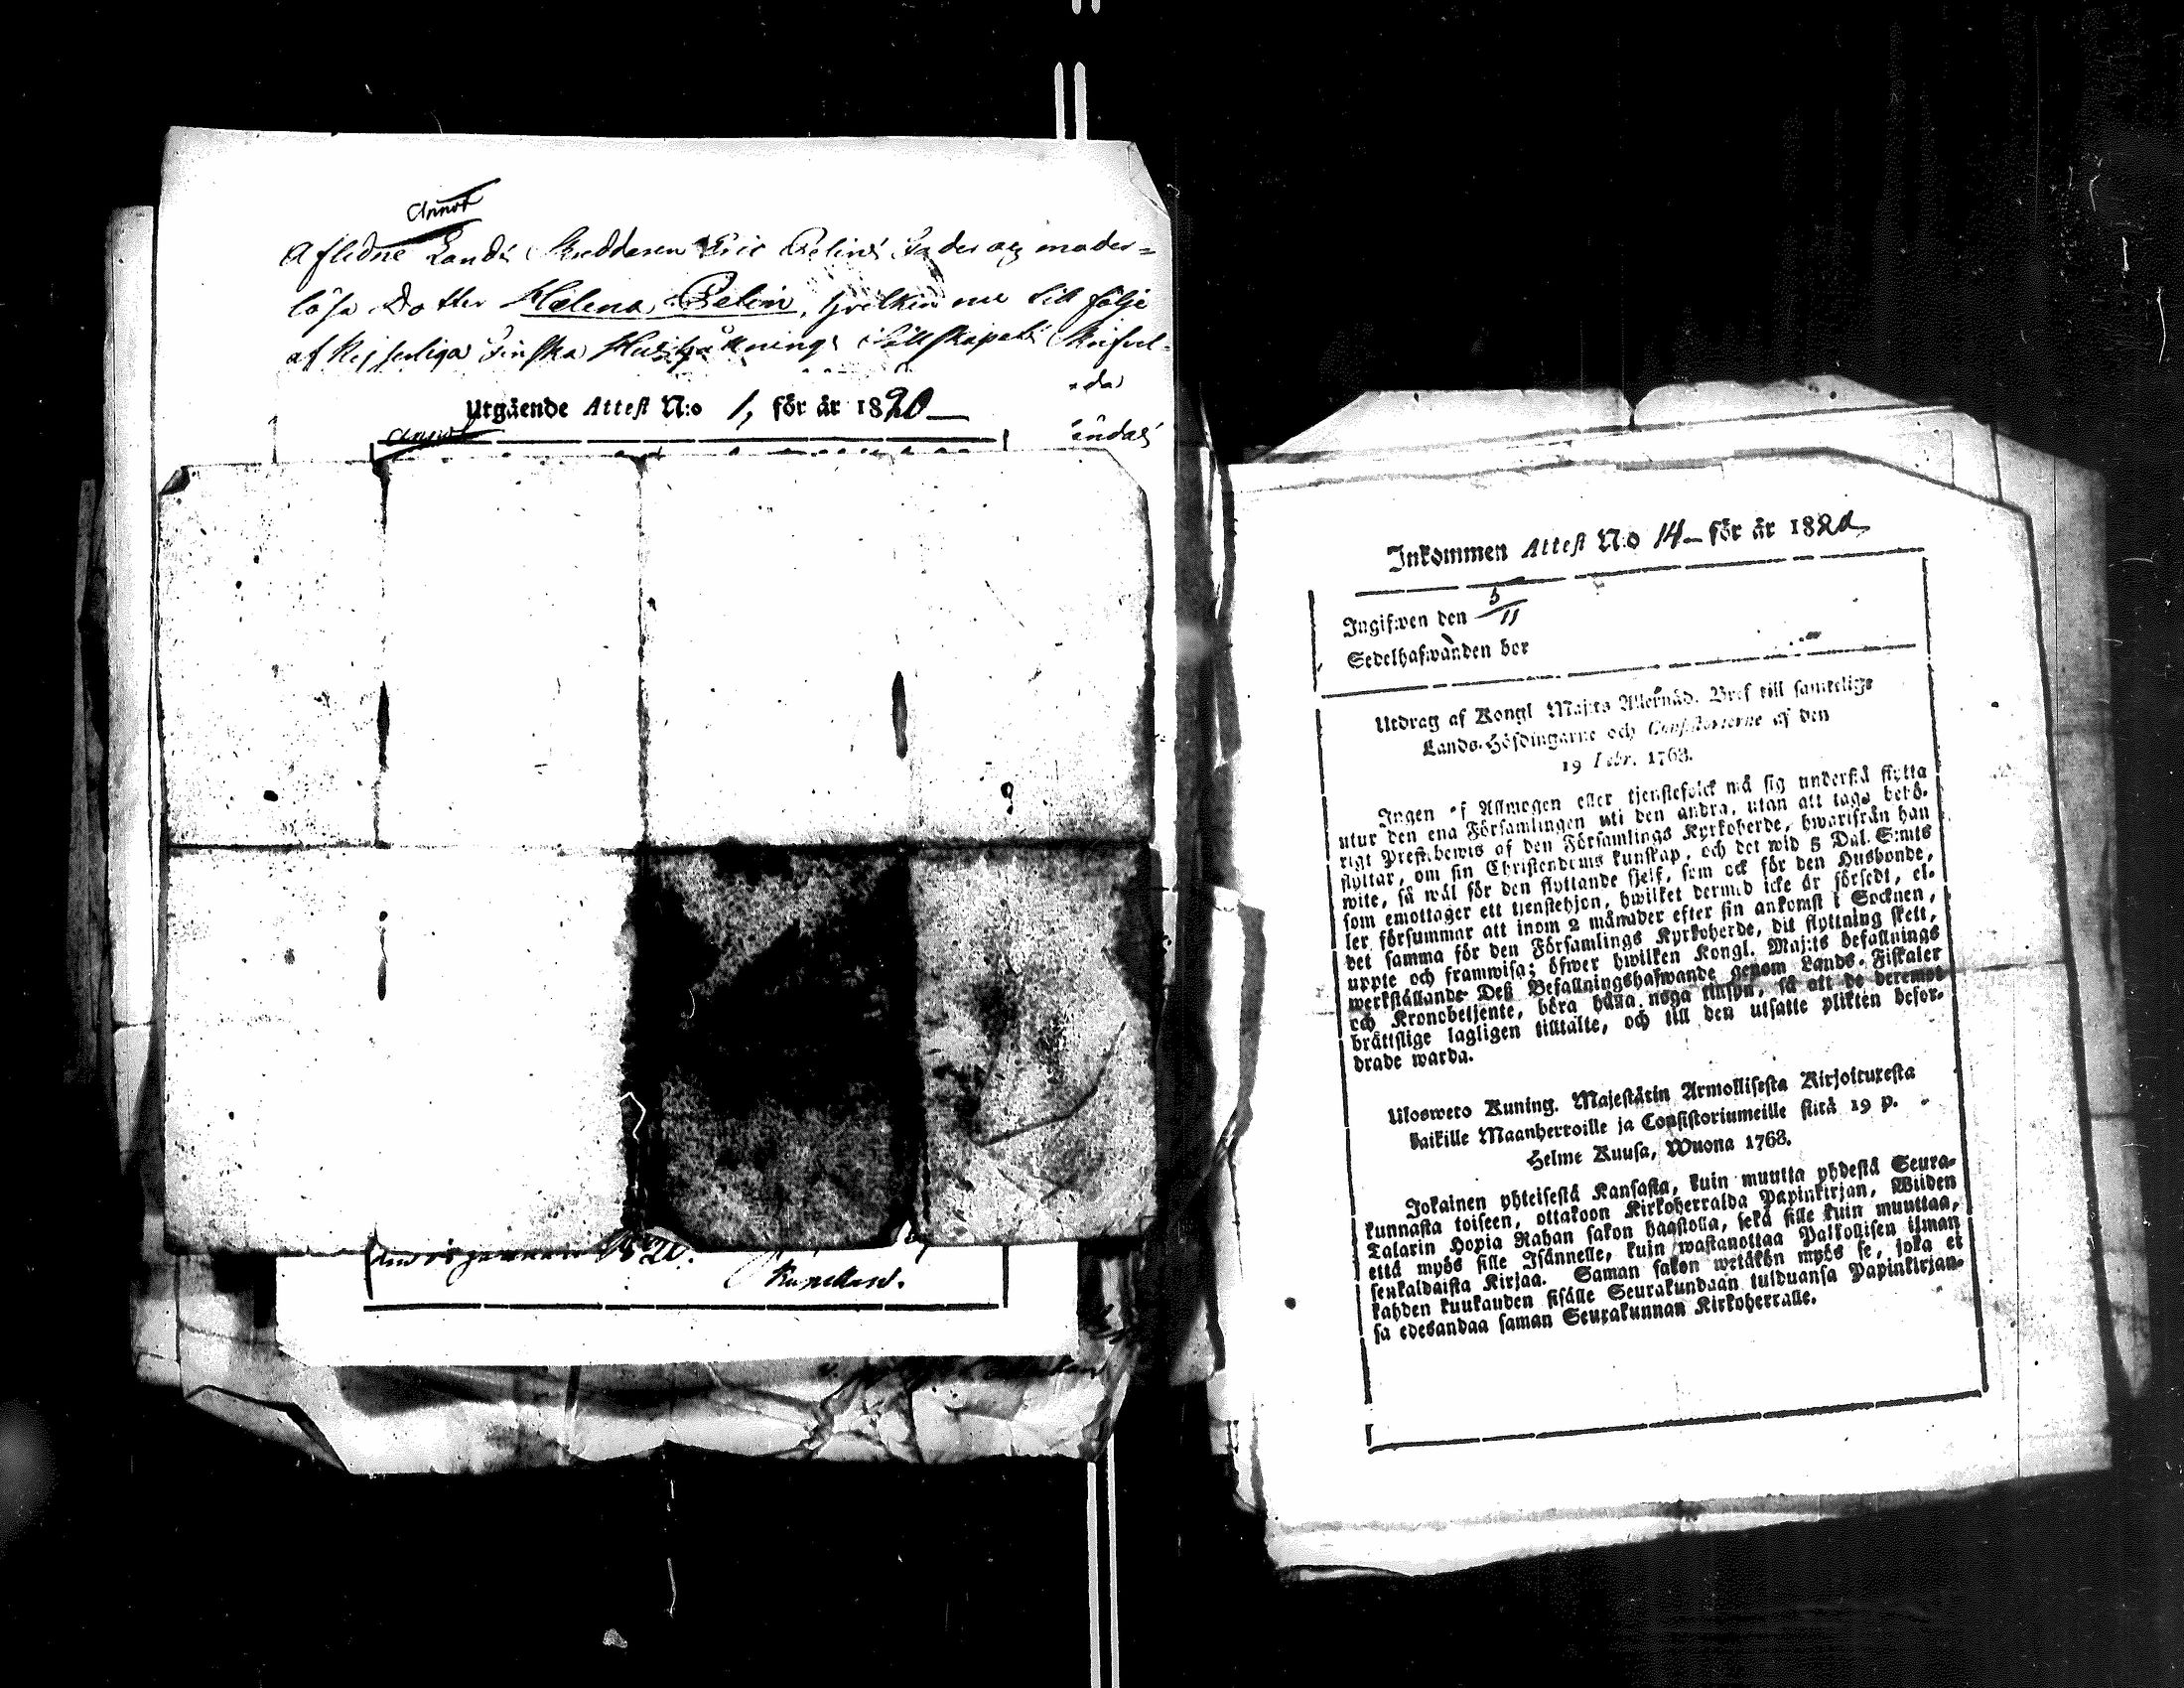 Annot
Aflidne Lands Skreddaren Eric Pelins Fader og moder=
lösa Dotter Helena Pelin, hvilken nu till följe
af Kejserliga Finska Hushållnings Sällskapets
Utgående Attest N:o 1, för år 1820
Annot
1820.
Inkommen Attest N:o 14 för år 182
Ingifwen den 5/11
Sedelhafwanden bor
Utdrag af Kongl Maj:ts Allernåd. Bref till samtelige
Lands-Höfdingarne och Consistorierne af den
19 Febr. 1763.
Ingen af Allmogen eller tjenstefolck må sig understå flytta
utur den ena Församlingen uti den andra, utan att taga behö-
rigt Prestbewis af den Församlings Kyrkoherde, hwarifrån han
flyttar, om sin Christendoms kunskap, och det wid 5 Dal. S:mts
wite, så wäl för den flyttande sjelf, som ock för den Husbonde,
som emottager ett tjenstehjon, hwilket dermed icke är försedt, el-
ler försummar att inom 2 månader efter sin ankomst i Socknen,
det samma för den Församlings Kyrkoherde, dit flyttning skett,
uppte och framwisa; öfwer hwilken Kongl. Maj:ts befallnings
werkställande Deß Befallningshafwande genom Lands-Fiskaler
och Kronobetjente, böra hålla noga tillsyn, så att de deremot
brättslige lagligen tilltalte, och till den utsatte plikten befor-
drade warda.
Ulosweto Kuning. Majestätin Armollisesta Kirjoituxesta
kaikille Maanherroille ja Consistoriumeille siitä 19 p.
Helme Kuusa, Wuona 1763.
Jokainen yhteisestä Kansasta, kuin muutta yhdestä Seura-
kunnasta toiseen, ottakoon Kirkoherralda Papinkirjan, Wiiden
Talarin Hopia Rahan sakon haastolla, sekä sille kuin muuttaa,
että myös sille Isännelle, kuin wastanottaa Palkollisen ilman
senkaldaista Kirjaa. Saman sakon wetäkön myös se, joka ei
kahden kuukauden sisälle Seurakundaan tulduansa Papinkirjan-
sa edesandaa saman Seurakunnan Kirkoherralle.